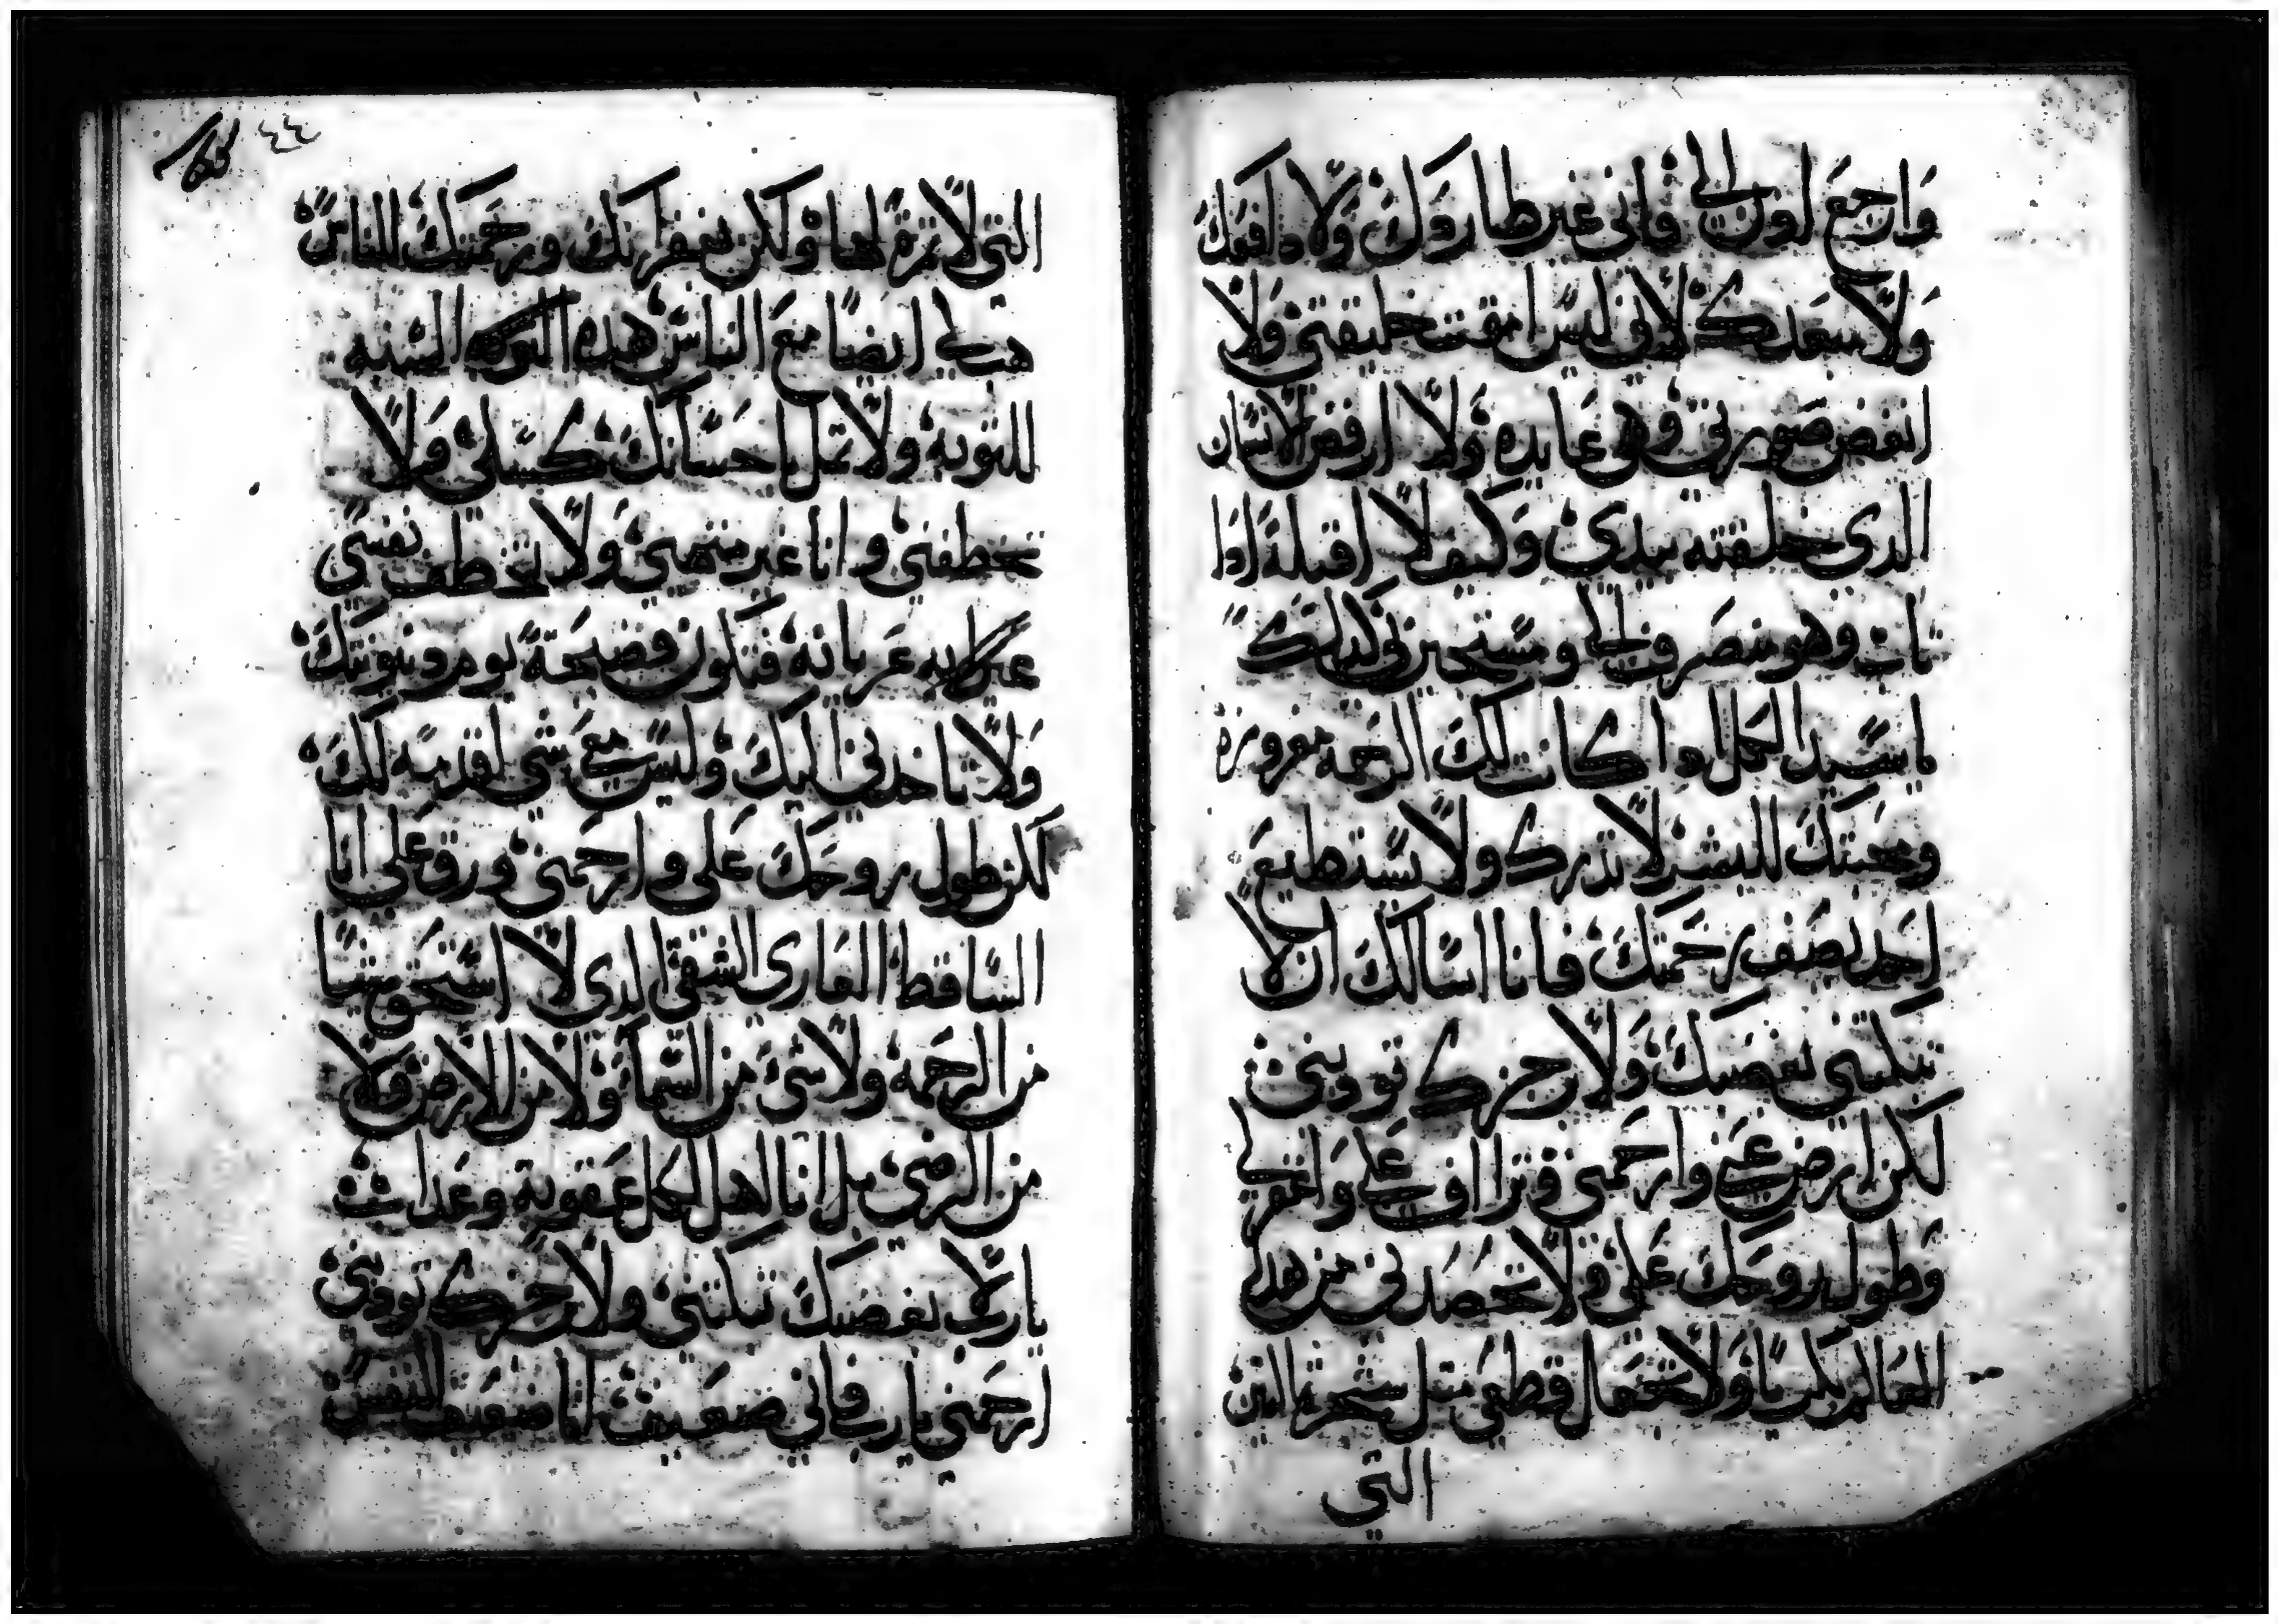 وارجع لون الي فاني غير طاردك ولا دافعك
ولا مبعدك لاني ليس امقت خليقتي ولا
ابغض صورتي وهي عابده ولا ارفض الانسان
الدي خلقته بيدي وكيف لا اقبله ادا
تاب وهو منصرف الي ومستجير بي لدلك
يا سيد الكل ادا كانت لك الرحمه مغروزة
ومحبتك للبشر لا تدرك ولا يستطيع
احد يصف رحمتك فانا اسالك ان لا
تبكتني بغضبك ولا برجزك تودبني
لكن ارض عني وارحمني وتراف علي واغفر لي
وطول روحك علي ولا تحصدني من هدا
العالم بكريا ولا تجعل قطعي مثل شجرة التين
التي
٤٤
التي لا ثمرة لها ولكن بغفرانك ورحمتك للناس
هب لي ايضا مع الناس هده البركه السنيه
للتوبه ولا تمل يا حسانك كسلي ولا
تخطفني وانا غير متهيي ولا تخطف نفسي
عريانه فتكون فضيحة يوم دينونتك
ولا تاخدني اليك وليس معي شي اقدمه لك
لكن طول روحك علي وارحمني ورق علي انا
الساقط العاري الشقي الدي لا استحق شيا
من الرحمه ولا شي من السما ولا من الارض ولا
من الرضي بل انا اهل لكل عقوبة وعداب
يا رب لا بغضبك تبكتني ولا برجزك تودبني
ارحمني يا رب فاني ضعيف انا ضعيف النفس